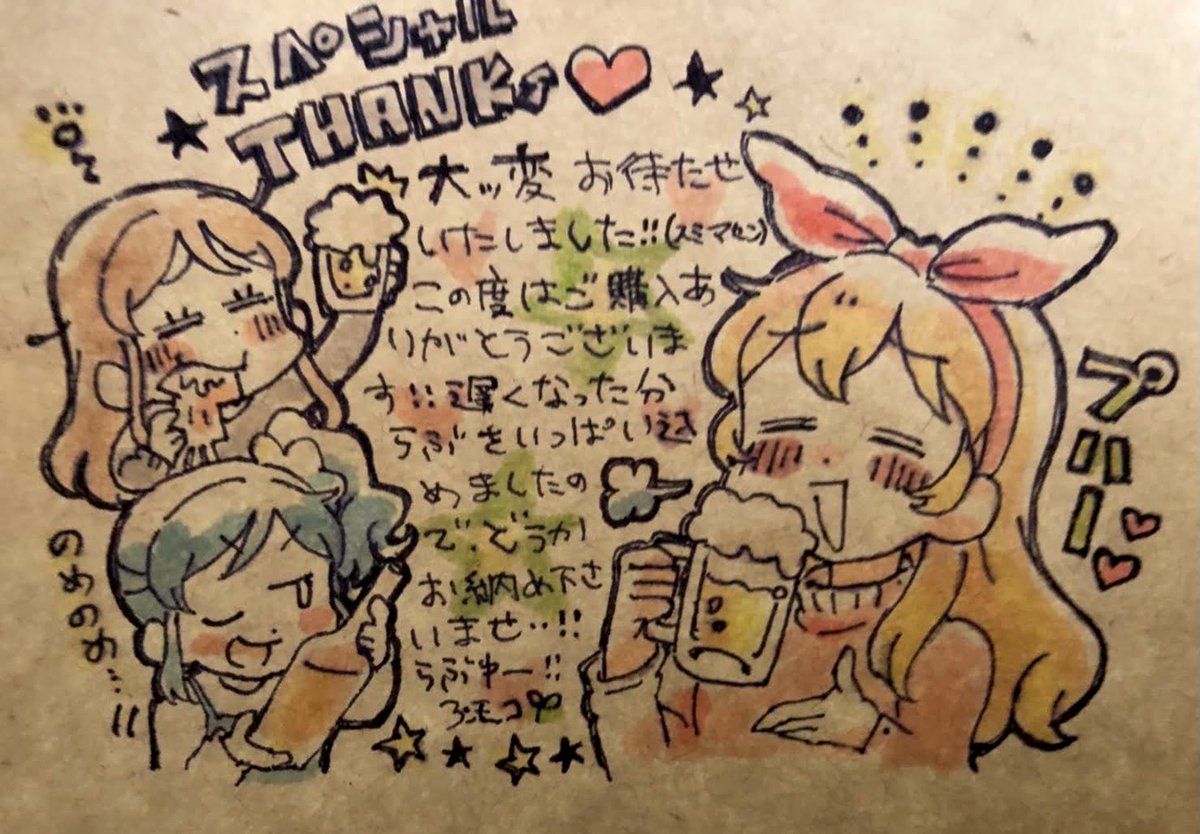 スペシャル
THANKS
大ッ変 お待たせ
いたしました!!(スミマセン)
この度はご購入あ
りがとうございま
す!!遅くなった分
らぶをいっぱい込
めましたの
で、どうか
お納め下さ
いませ…!!
らぶゅー!!
プハー
のめのめ…!!